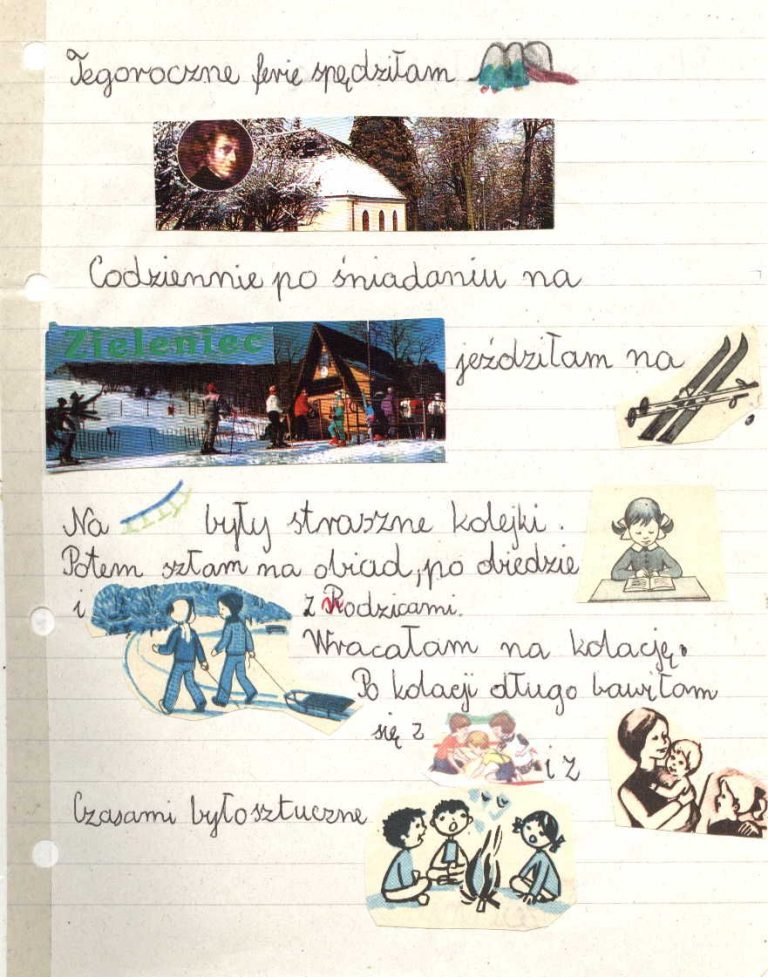 Tegoroczne ferie spędziłam
Codziennie po śniadaniu na
Zieleniec
jeździłam na
Na były straszne kolejki.
Potem szłam na obiad, po obiedzie
i z Rodzicami.
Wracałam na kolację.
Po kolacji długo bawiłam
się z i z
Czasami było sztuczne